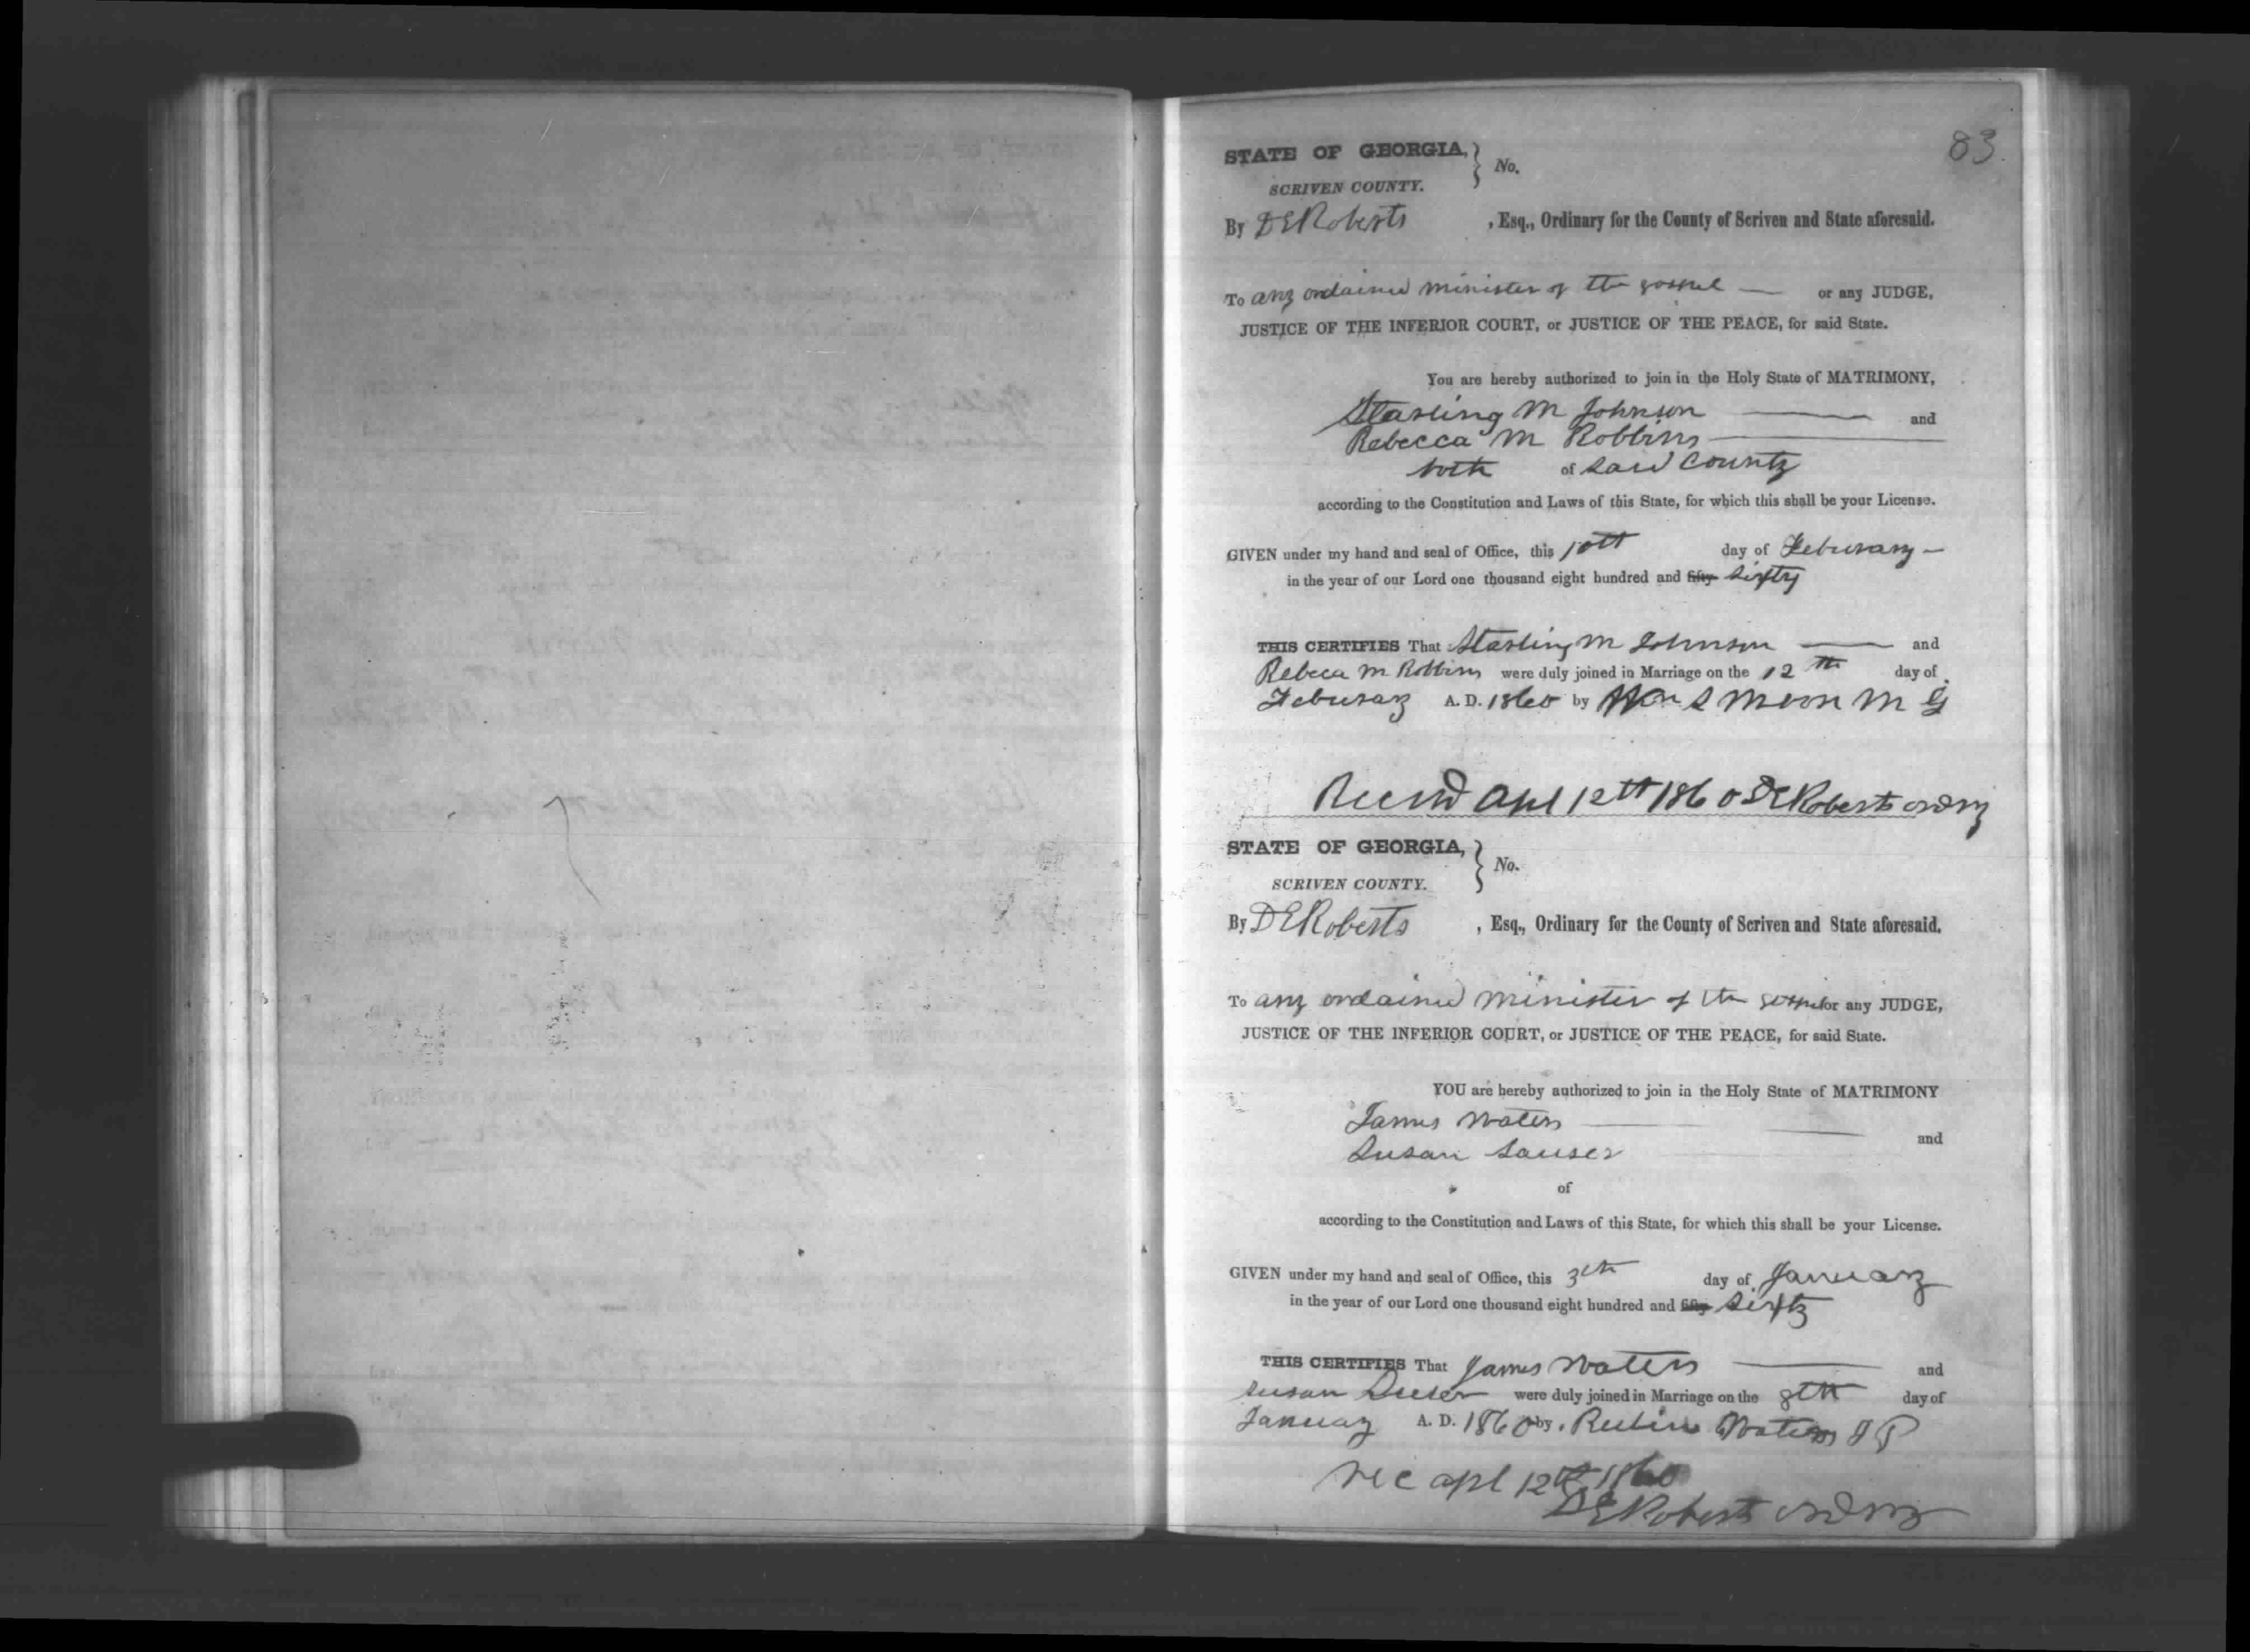 83.
STATE OF GEORGIA, } No.
SCRIVEN COUNTY.
By D E Roberts , Esq., Ordinary for the County of Scriven and State aforesaid.
To any ordained minister of the gospel — or any JUDGE,
JUSTICE OF THE INFERIOR COURT, or JUSTICE OF THE PEACE, for said State.
You are hereby authorized to join in the Holy State of MATRIMONY,
Starling M Johnson — and
Rebecca M Robbins —
both of said County
according to the Constitution and Laws of this State, for which this shall be your License.
GIVEN under my hand and seal of Office, this 10th day of Feburary —
in the year of our Lord one thousand eight hundred and fifty sixty
THIS CERTIFIES That Starling M Johnson — and
Rebeca M Robbins were duly joined in Marriage on the 12th day of
Feburary A. D. 1860 by S Moon M G
Apl 12th 1860 D E Roberts ordny
STATE OF GEORGIA, } No.
SCRIVEN COUNTY.
By D E Roberts , Esq., Ordinary for the County of Scriven and State aforesaid.
To any ordained minister of the gospel or any JUDGE,
JUSTICE OF THE INFERIOR COURT, or JUSTICE OF THE PEACE, for said State.
YOU are hereby authorized to join in the Holy State of MATRIMONY
James Waters — — and
Susan
of
according to the Constitution and Laws of this State, for which this shall be your License.
GIVEN under my hand and seal of Office, this day of January
in the year of our Lord one thousand eight hundred and fifty sixty
THIS CERTIFIES That James Waters — and
Susan were duly joined in Marriage on the 8th day of
January A. D. 1860 by Waters J P
rec apl 12th 1860
D E Roberts ordny